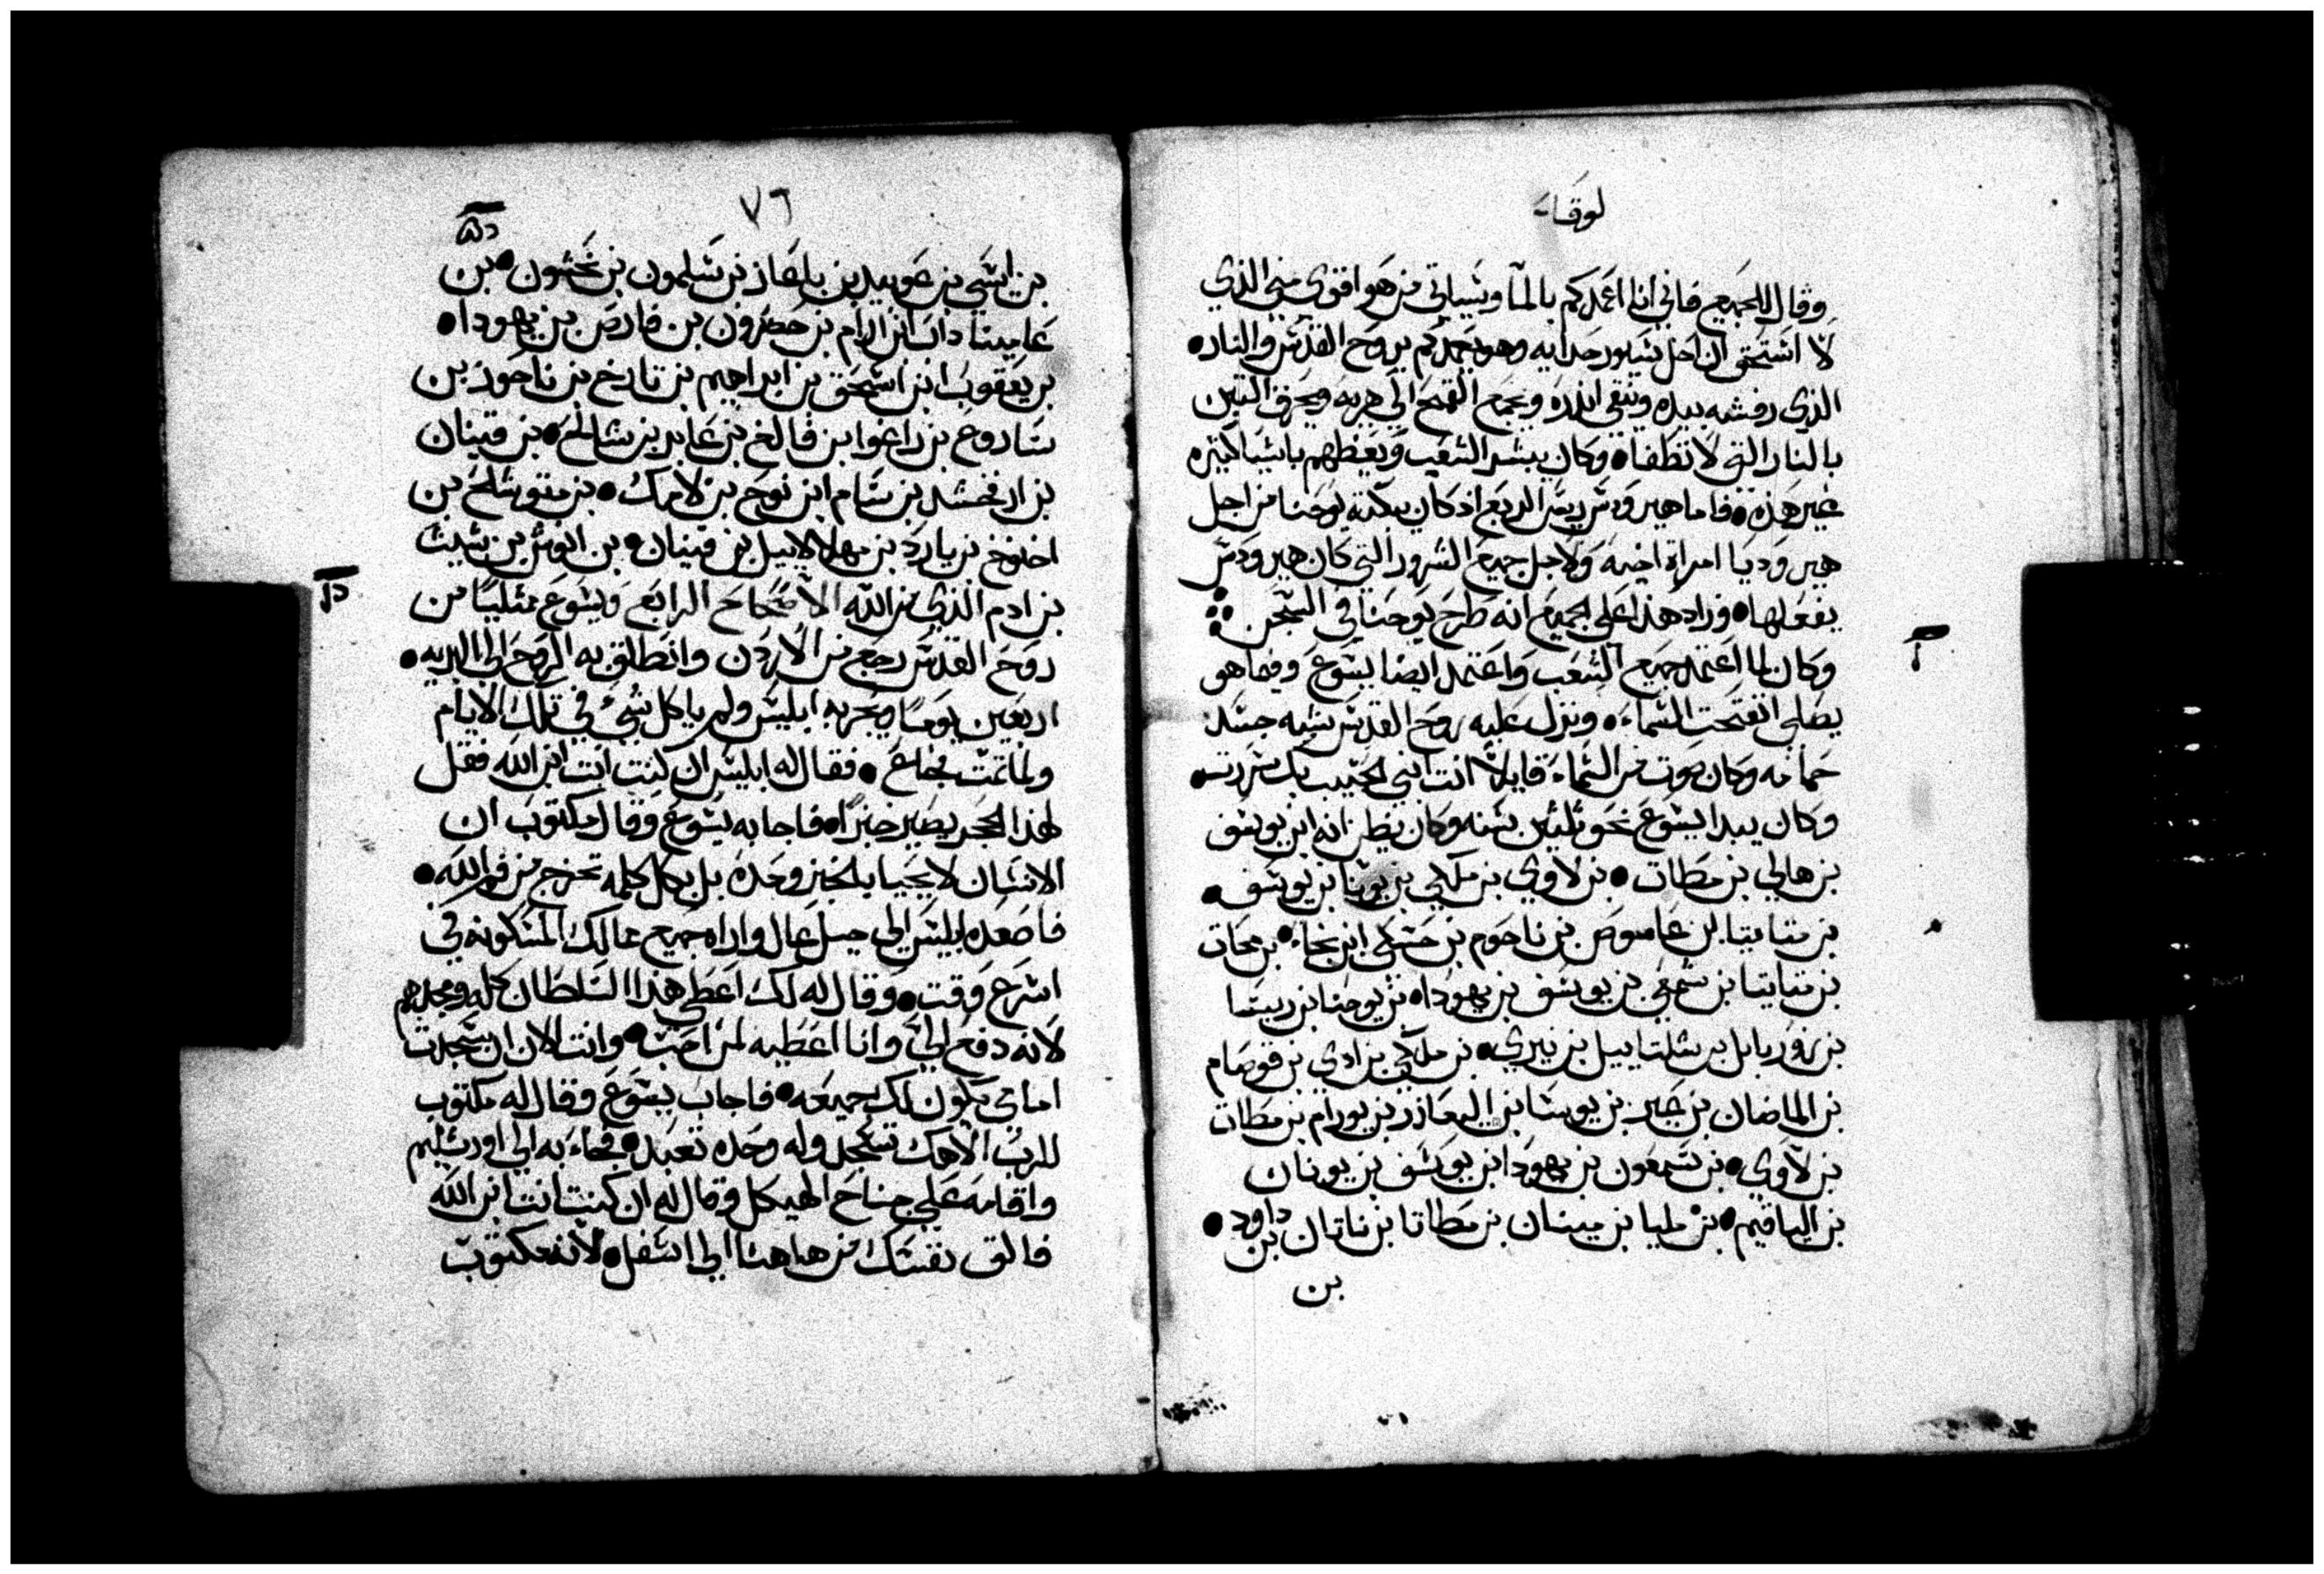 لوقا
وقال للجميع فاني انا اعمدكم بالمآ وسياتي من هو اقوى مني الذي
لا استحق ان احل سيور حدايه وهو يعمدكم بروح القدس والنار
الذي رفشه بيده وينقي اندره ويجمع القمح الى هريه ويحرق التبن
بالنار التي لا تطفا وكان يبشر الشعب ويعظهم باشيا كثيره
غير هذه فاما هيرودس ريس الربع اذ كان يبكته يوحنا من اجل
هيروديا امراة اخيه ولاجل جميع الشرور التي كان هيرودس
يفعلها وزاد هذا على الجميع انه طرح يوحنا في السجن
وكان لما اعتمد جميع الشعب واعتمد ايضا يسوع وفيما هو
يصلي انفتحت السماء ونزل عليه روح القدس بشبه جسد
حمامه وكان صوت من السماء قايلا انت ابني الحبيب بك سررت
وكان يبدا يسوع نحو ثلثين سنه وكان يظن انه ابن يوسف
بن هالي بن مطات بن لاوي بن ملكي بن يونا بن يوسف
بن متاتيا بن عاموص بن ناحوم بن حسلى ابن نجاء بن محات
بن متاتيا بن شمعي بن يوسف بن يهودا بن يوحنا بن ريسا
بن زوربابل بن شلتاييل بن نيري بن ملكي بن ادي بن قوصام
بن الماضان بن عير بن يوسا بن اليعازر بن يورام بن مطات
بن لاوي بن شمعون بن يهودا ابن يوسف بن يونان
بن الياقيم بن مليا بن مينان بن مطاتا بن ناتان بن داود
بن
٧٦
بن ايسي بن عوبيد بن باعاز بن سلمون بن نحشون بن
عاميناداب ابن ارام بن حصرون بن فارص بن يهودا
بن يعقوب ابن اسحق بن ابراهيم بن تارخ بن ناحور بن
ساروع بن راعوا بن فالغ بن عابر بن شالح بن قينان
بن ارفخشد بن سام ابن نوح بن لامك بن متوشلح بن
اخنوخ بن يارد بن مهلالاييل بن قينان بن انوش بن شيث
بن ادم الذي من الله الاصحاح الرابع ويسوع ممتليا من
روح القدس رجع من الاردن وانطلق به الروح الى البريه
اربعين يوما يجربه ابليس ولم ياكل شي في تلك الايام
ولما تمت جاع فقال له ابليس ان كنت انت ابن الله فقل
لهذا الحجر يصير خبزا فاجابه يسوع وقال مكتوب ان
الانسان لا يحيا بالخبز وحده بل بكل كلمه تخرج من فم الله
فاصعده ابليس الى جبل عال واراه جميع ممالك المسكونه في
اسرع وقت وقال له لك اعطي هذا السلطان كله ومجدهم
لانه دفع الي وانا اعطيه لمن احب وانت الان ان سجدت
امامي يكون لك جميعه فاجاب يسوع وقال له مكتوب
للرب الاهك تسجد وله وحده تعبد فجاء به الى اورشليم
واقامه على جناح الهيكل وقال له ان كنت انت ابن الله
فالق نفسك من هاهنا الى اسفل لانه مكتوب